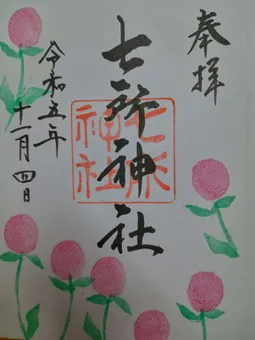 奉拝
七所神社
七所神社
令和五年
十一月四日